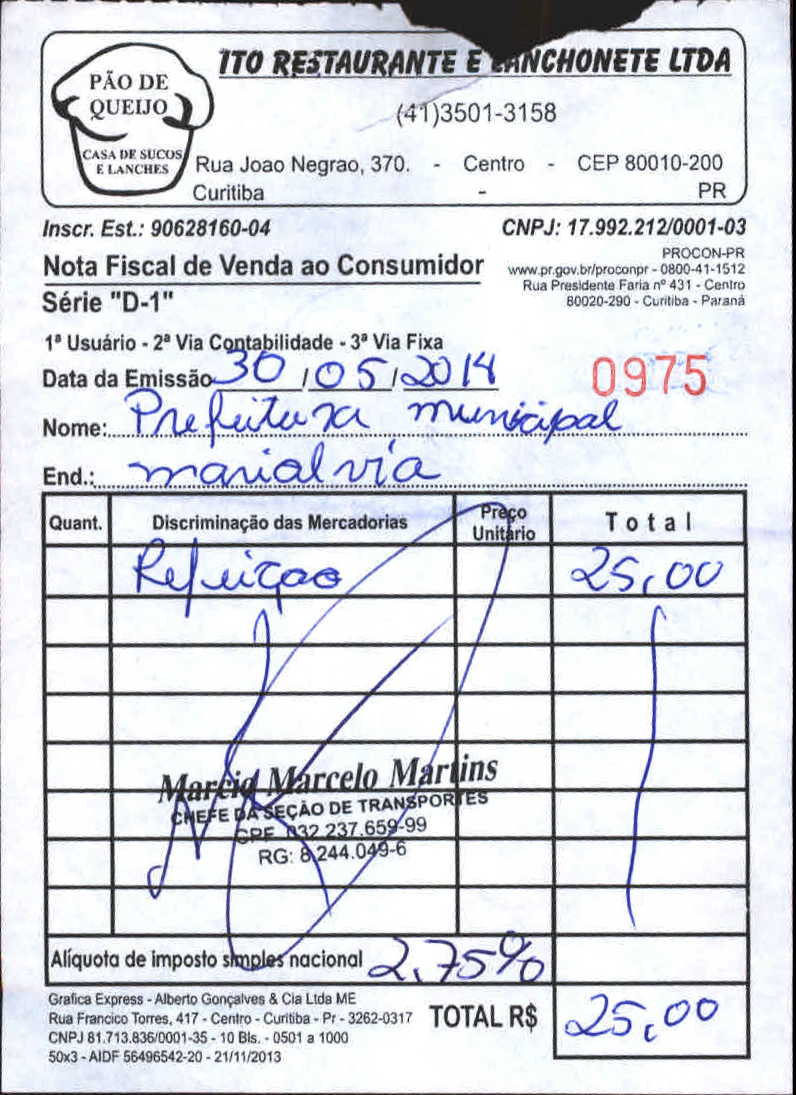 PÃO DE
QUEIJO
CASA DE SUCOS
E LANCHES
ITO RESTAURANTE E LANCHONETE LTDA
(41)3501-3158
Rua Joao Negrao, 370. - Centro - CEP 80010-200
Curitiba - PR
Inscr. Est.: 90628160-04 CNPJ: 17.992.212/0001-03
Nota Fiscal de Venda ao Consumidor
Série "D-1"
PROCON-PR
www.pr.gov.br/proconpr - 0800-41-1512
Rua Presidente Faria nº 431 - Centro
80020-290 - Curitiba - Paraná
1ª Usuário - 2ª Via Contabilidade - 3ª Via Fixa
Data da Emissão 30 / 05 / 2014 0975
Nome: Prefeitura municipal
End.: marialvia
Quant. Discriminação das Mercadorias Preço Unitário Total
Refeiçao 25,00
Marcio Marcelo Martins
CHEFE DA SEÇÃO DE TRANSPORTES
CPF 032.237.659-99
RG: 8.244.049-6
Alíquota de imposto simples nacional 2,75%
Grafica Express - Alberto Gonçalves & Cia Ltda ME
Rua Francico Torres, 417 - Centro - Curitiba - Pr - 3262-0317
CNPJ 81.713.836/0001-35 - 10 Bls. - 0501 a 1000
50x3 - AIDF 56496542-20 - 21/11/2013
TOTAL R$ 25,00